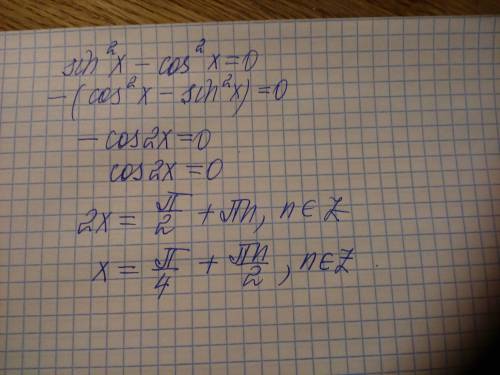 sin²x − cos²x = 0
−(cos²x − sin²x) = 0
−cos2x = 0
cos2x = 0
2x = π/2 + πn, n∈Z
x = π/4 + πn/2, n∈Z